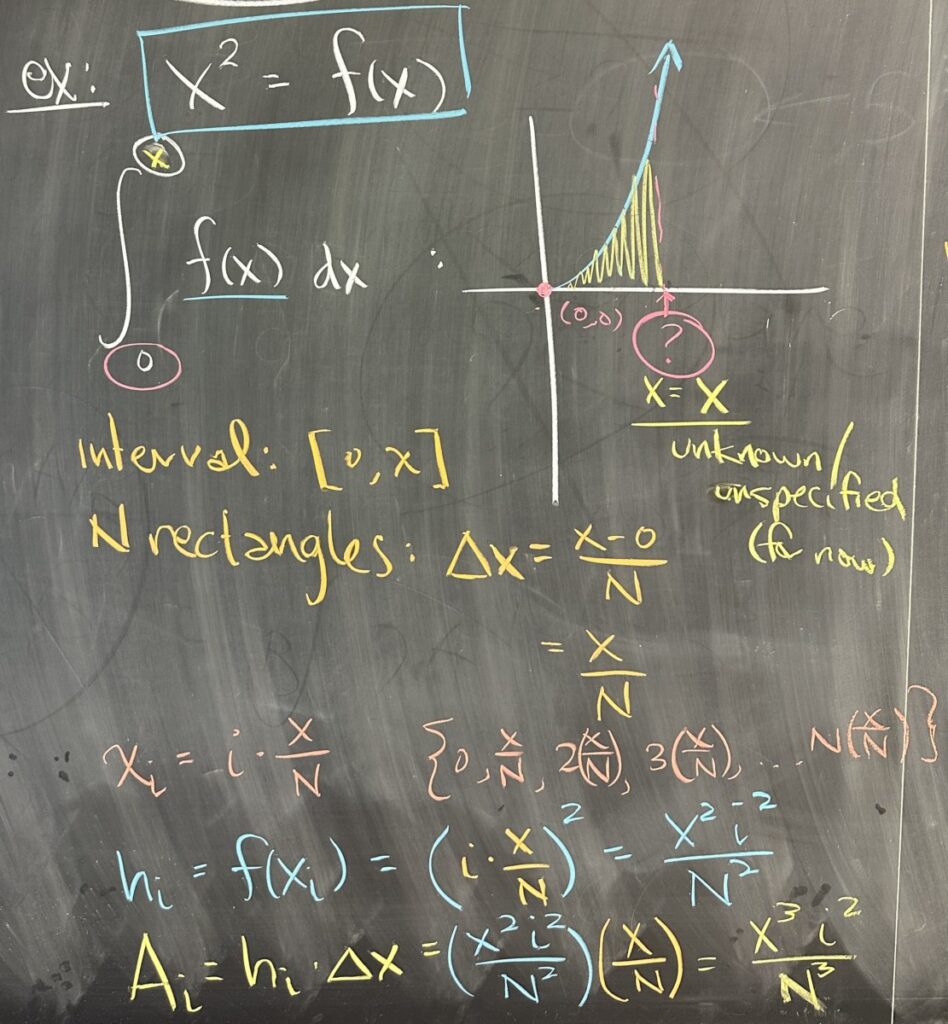 ex: x² = f(x)
∫₀ˣ f(x) dx :
(0,0)
?
x = x
unknown/
unspecified
(for now)
interval: [0, x]
N rectangles: Δx = (x-0)/N
= x/N
xᵢ = i · x/N {0, x/N, 2(x/N), 3(x/N), ... N(x/N)}
hᵢ = f(xᵢ) = (i · x/N)² = x² i²/N²
Aᵢ = hᵢ · Δx = (x² i²/N²)(x/N) = x³ i²/N³